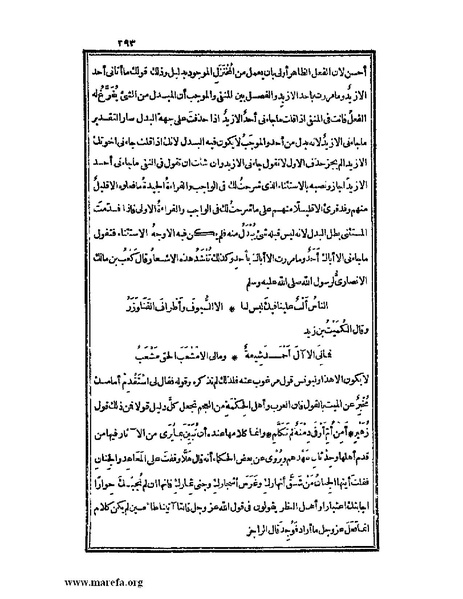 ٢٩٣
أحسن لان الفعل الظاهر أولى بان يعمل من المختزل الموجود بدليل وذلك قولك ما أتانى أحد
الا زيد وما مررت باحد الا زيد والفصل بين المنفى والموجب أن المبدل من الشئ يفرغ له
الفعل فانت فى المنفى اذا قلت ما جاءنى أحد الا زيد اذا حذفت على جهة البدل صار التقدير
ما جاءنى الا زيد لانه بدل من أحد والموجب لا يكون فيه البدل لانك اذا قلت جاءنى اخوتك
الا زيدا لم يجز حذف الاول لا تقول جاءنى الا زيد وان شئت أن تقول فى النفى ما جاءنى أحد
الا زيدا جاز ونصبه بالاستثناء الذى شرحت لك فى الواجب والقراءة الجيدة ما فعلوه الا قليل
منهم وقد قرئ الا قليلا منهم على ما شرحت لك فى الواجب والقراءة الاولى فاذا قدمت
المستثنى بطل البدل لانه ليس قبله شئ يبدل منه فلم يكن فيه الا وجه الاستثناء فتقول
ما جاءنى الا أباك أحد وما مررت الا أباك باحد وكذلك تنشد هذه الاشعار قال كعب بن مالك
الانصارى لرسول الله صلى الله عليه وسلم
الناس ألب علينا فيك ليس لنا * الا السيوف وأطراف القنا وزر
وقال الكميت بن زيد
فمالى الا آل أحمد شيعة * ومالى الا مشعب الحق مشعب
لا يكون الا هذا وليونس قول مرغوب عنه فلذلك لم نذكره وقوله فقال لى استقدم أمامك
مخبر عن الميت بالقول فان العرب وأهل الحكمة من العجم تجعل كل دليل قولا فمن ذلك قول
زهير * أمن أم أوفى دمنة لم تكلم * وانما كلامها عنده أن تبين بما يرى من الآثار فيها من
قدم أهلها وحدثان عهدهم ويروى عن بعض الحكماء أنه قال هلا وقفت على المعاهد والجنان
فقلت أيتها الجنان من شق أنهارك وغرس أشجارك وجنى ثمارك فانها ان لم تجبك حوارا
أجابتك اعتبارا وأهل النظر يقولون فى قول الله عز وجل قالتا أتينا طائعين لم يكن كلام
انما فعل عز وجل ما أراد فوجد قال الراجز
www.marefa.org